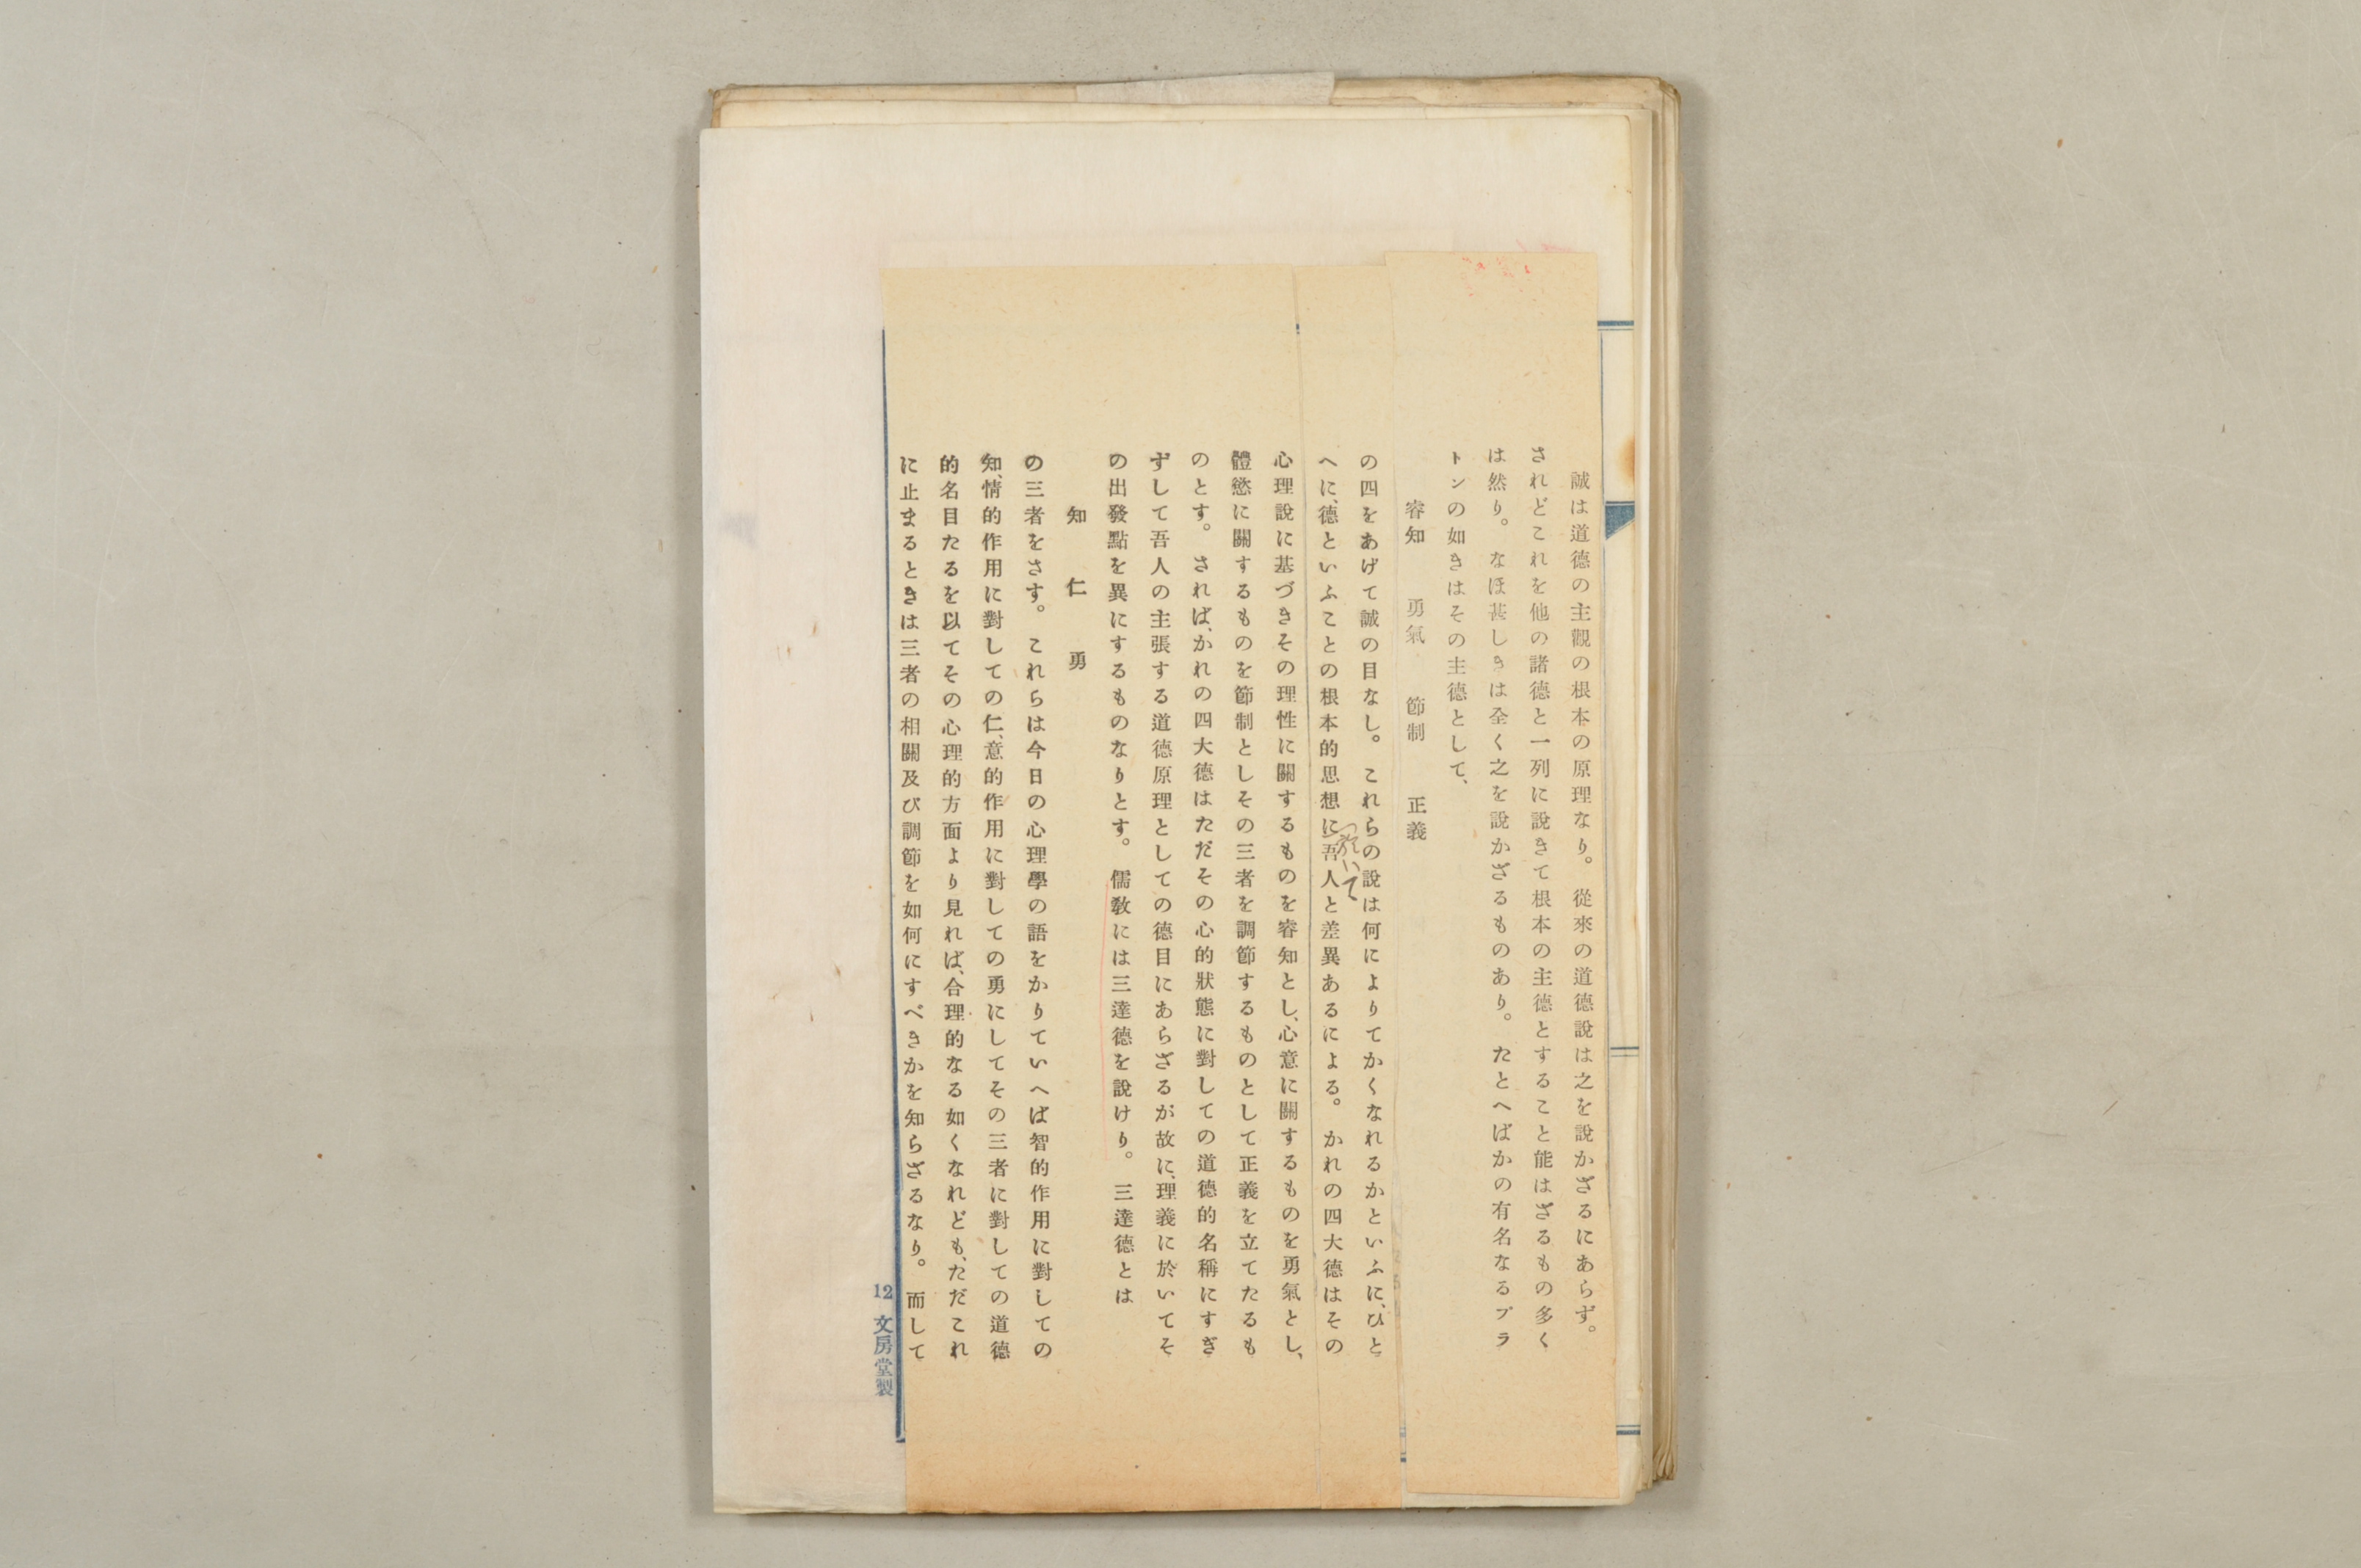 誠は道德の主觀の根本の原理なり。從來の道德說は之を說かざるにあらず。
されどこれを他の諸德と一列に說きて根本の主德とすること能はざるもの多く
は然り。なほ甚しきは全く之を說かざるものあり。たとへばかの有名なるプラ
トンの如きはその主德として、
睿知　勇氣　節制　正義
の四をあげて誠の目なし。これらの說は何によりてかくなれるかといふに、ひと
へに、德といふことの根本的思想に吾人と差異あるによる。かれの四大德はその
於いて
心理說に基づきその理性に關するものを睿知とし、心意に關するものを勇氣とし、
體慾に關するものを節制としその三者を調節するものとして正義を立てたるも
のとす。されば、かれの四大德はただその心的狀態に對しての道德的名稱にすぎ
ずして吾人の主張する道德原理としての德目にあらざるが故に、理義に於いてそ
の出發點を異にするものなりとす。儒敎には三達德を說けり。三達德とは
知　仁　勇
の三者をさす。これらは今日の心理學の語をかりていへば智的作用に對しての
知、情的作用に對しての仁、意的作用に對しての勇にしてその三者に對しての道德
的名目たるを以てその心理的方面より見れば、合理的なる如くなれども、ただこれ
に止まるときは三者の相關及び調節を如何にすべきかを知らざるなり。而して
12 文房堂製